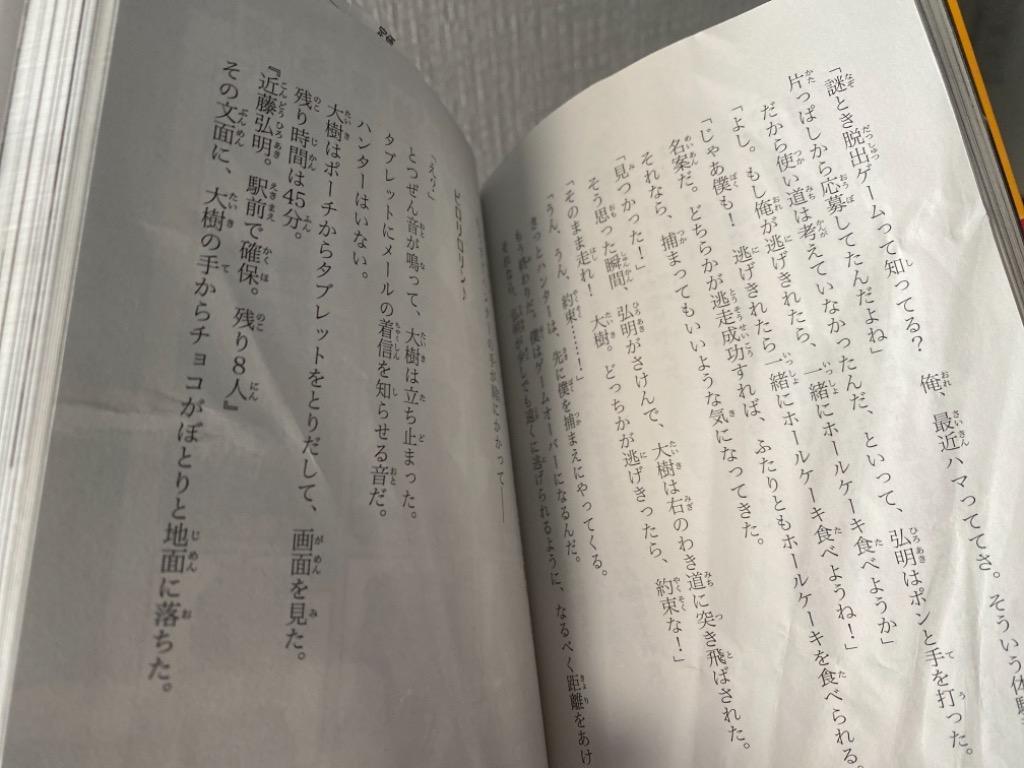 「謎とき脱出ゲームって知ってる？　俺、最近ハマっててさ。そういう体験
片っぱしから応募してたんだよね」
だから使い道は考えていなかったんだ、といって、弘明はポンと手を打った。
「よし。もし俺が逃げきれたら、一緒にホールケーキ食べようか」
「じゃあ僕も！　逃げきれたら一緒にホールケーキ食べようね！」
名案だ。どちらかが逃走成功すれば、ふたりともホールケーキを食べられる。
それなら、捕まってもいいような気になってきた。
「見つかった！」
そう思った瞬間、弘明がさけんで、大樹は右のわき道に突き飛ばされた。
「そのまま走れ！　大樹。どっちかが逃げきったら、約束な！」
「うん、うん、約束……！」
きっとハンターは、先に僕を捕まえにやってくる。
僕はゲームオーバーになるんだ。
少しでも遠くに逃げられるように、なるべく距離をあけ
ピロリロリン♪
「えっ」
とつぜん音が鳴って、大樹は立ち止まった。
タブレットにメールの着信を知らせる音だ。
ハンターはいない。
大樹はポーチからタブレットをとりだして、画面を見た。
残り時間は45分。
『近藤弘明。駅前で確保。残り8人』
その文面に、大樹の手からチョコがぽとりと地面に落ちた。